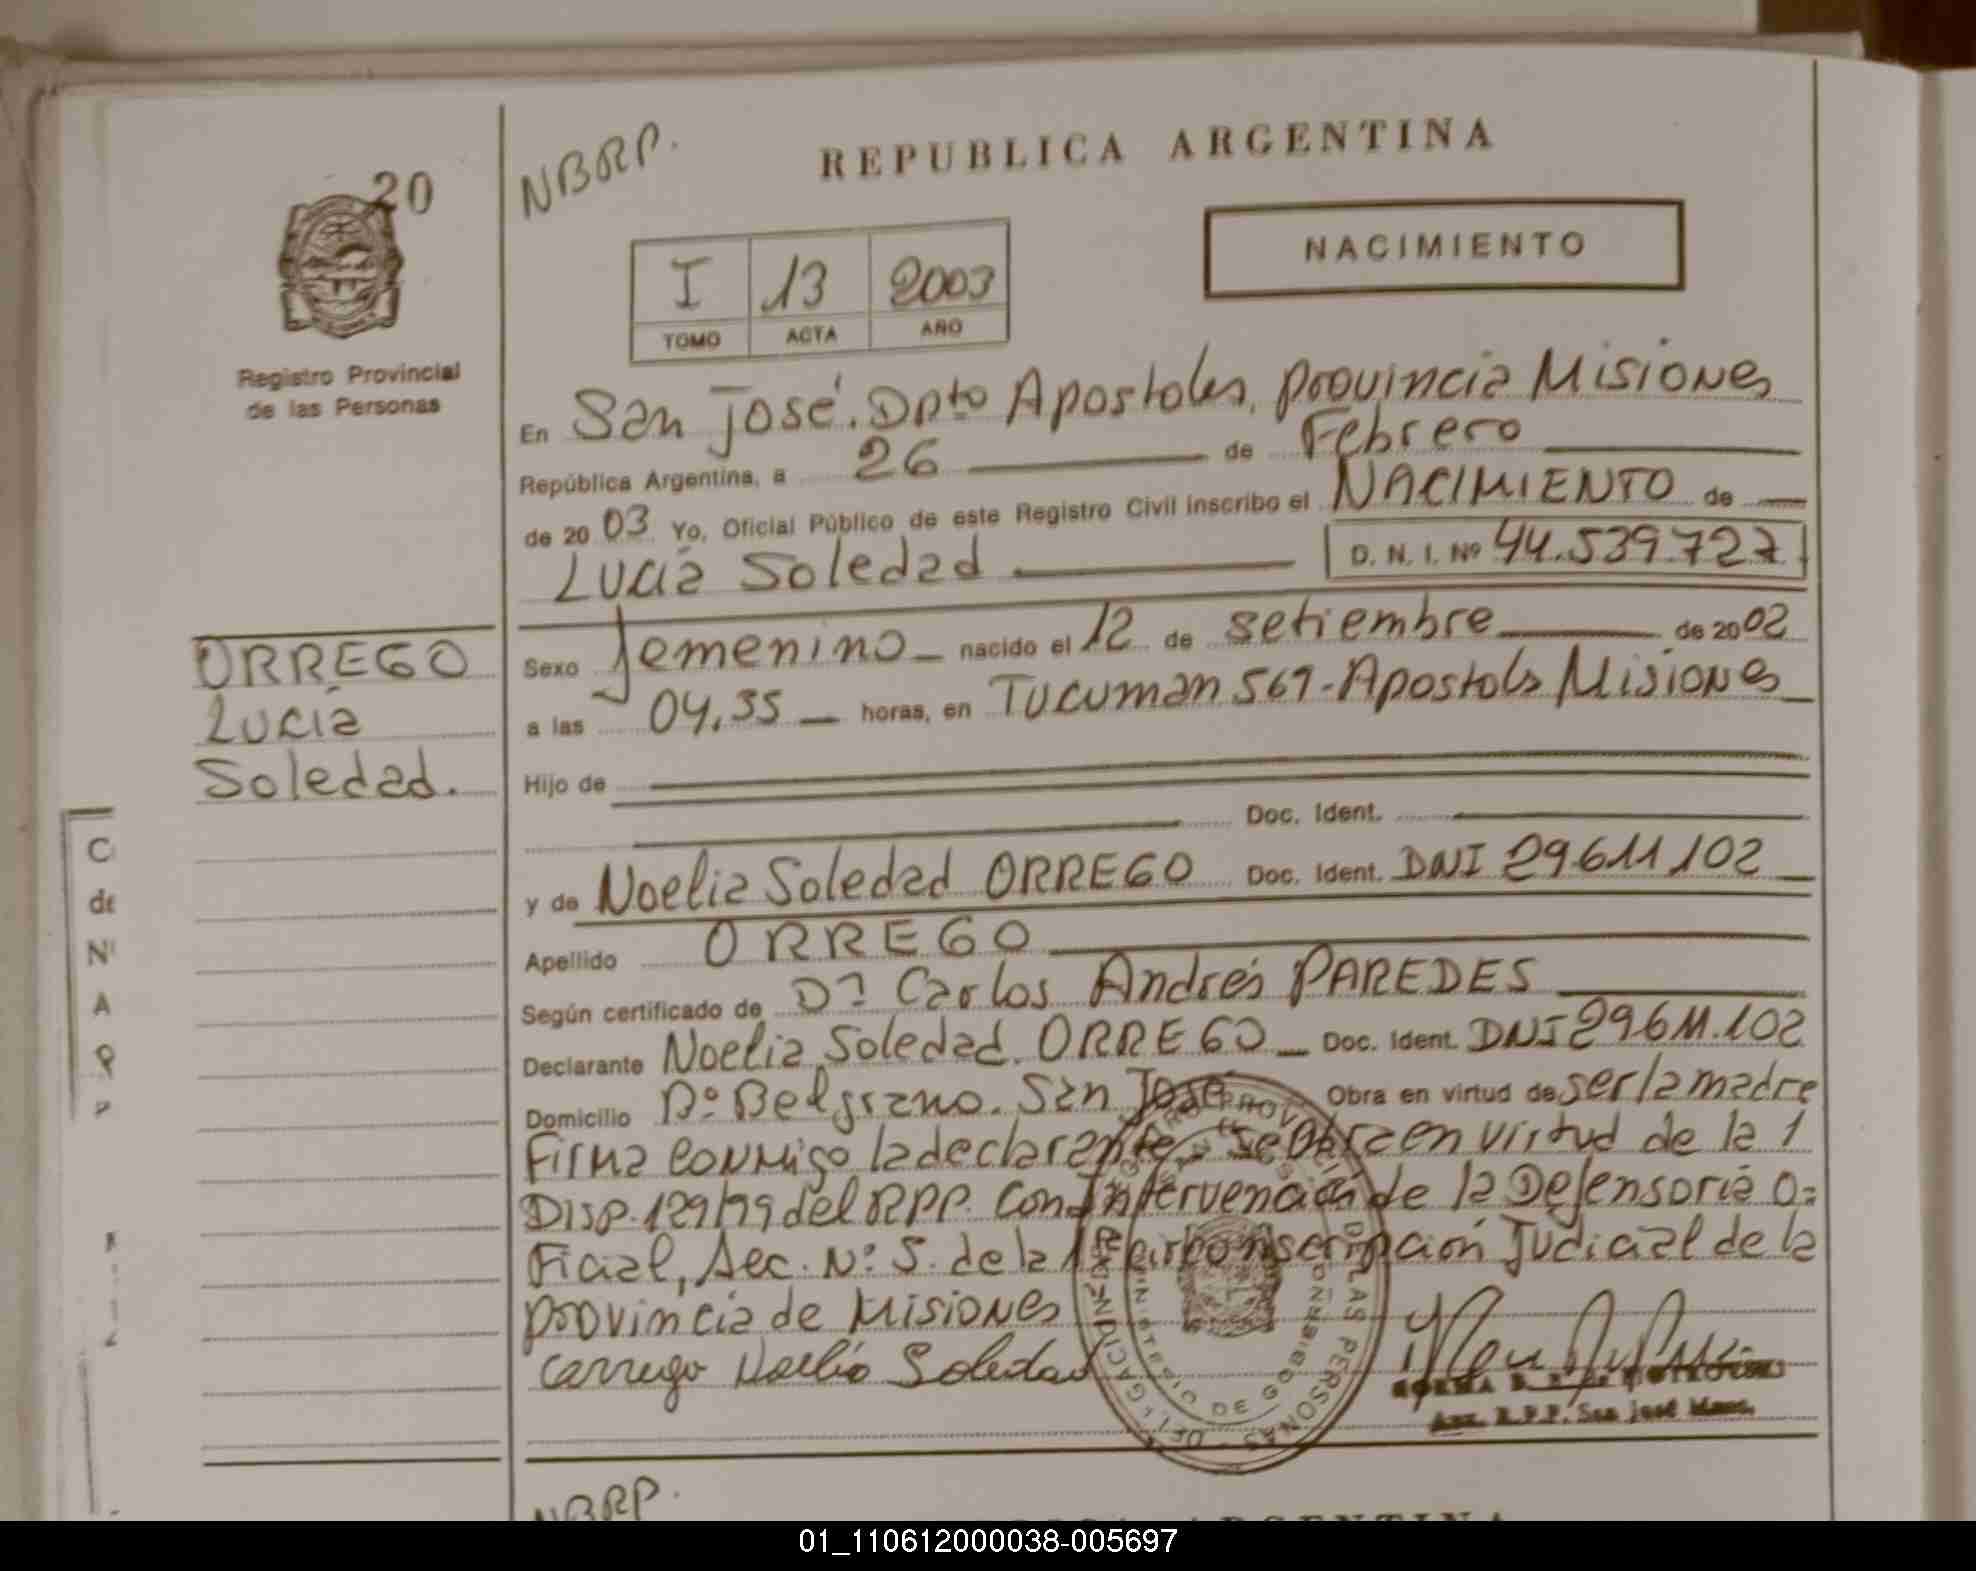 20
NBRP.
REPUBLICA ARGENTINA
I 13 2003
TOMO ACTA AÑO
NACIMIENTO
Registro Provincial
de las Personas
En San José. Dpto Apostoles, provincia Misiones
República Argentina, a 26 de Febrero
de 2003 Yo, Oficial Público de este Registro Civil inscribo el NACIMIENTO de
Lucía Soledad D. N. I. Nº 44.539.727
ORREGO
Lucía
Soledad.
Sexo femenino nacido el 12 de setiembre de 2002
a las 04,35 horas, en Tucuman 561-Apostols Misiones
Hijo de
Doc. Ident.
y de Noelia Soledad ORREGO Doc. Ident. DNI 29611102
Apellido ORREGO
Según certificado de Dr. Carlos Andrés PAREDES
Declarante Noelia Soledad ORREGO Doc. Ident. DNI 29611.102
Domicilio Bº Belgrano. San José Obra en virtud de ser la madre
Firma conmigo la declarante se obra en virtud de la
Disp. 129/99 del RPP. Con Intervención de la Defensoria O=
Ficial, Sec. Nº 5. de la 1ª circonscripción Judicial de la
provincia de Misiones
Orrego Noelia Soledad
DELEGACION
REGISTRO PROVINCIAL DE LAS PERSONAS
MINISTERIO DE GOBIERNO
NORMA
Aux. R.P.P. San José Mnes.
C
de
A
P
NBRP.
01_110612000038-005697